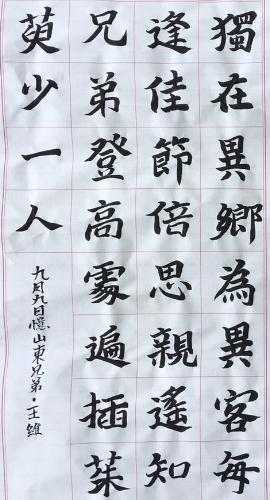 獨在異鄉為異客每
逢佳節倍思親遙知
兄弟登高處遍插茱
萸少一人
九月九日憶山東兄弟·王維